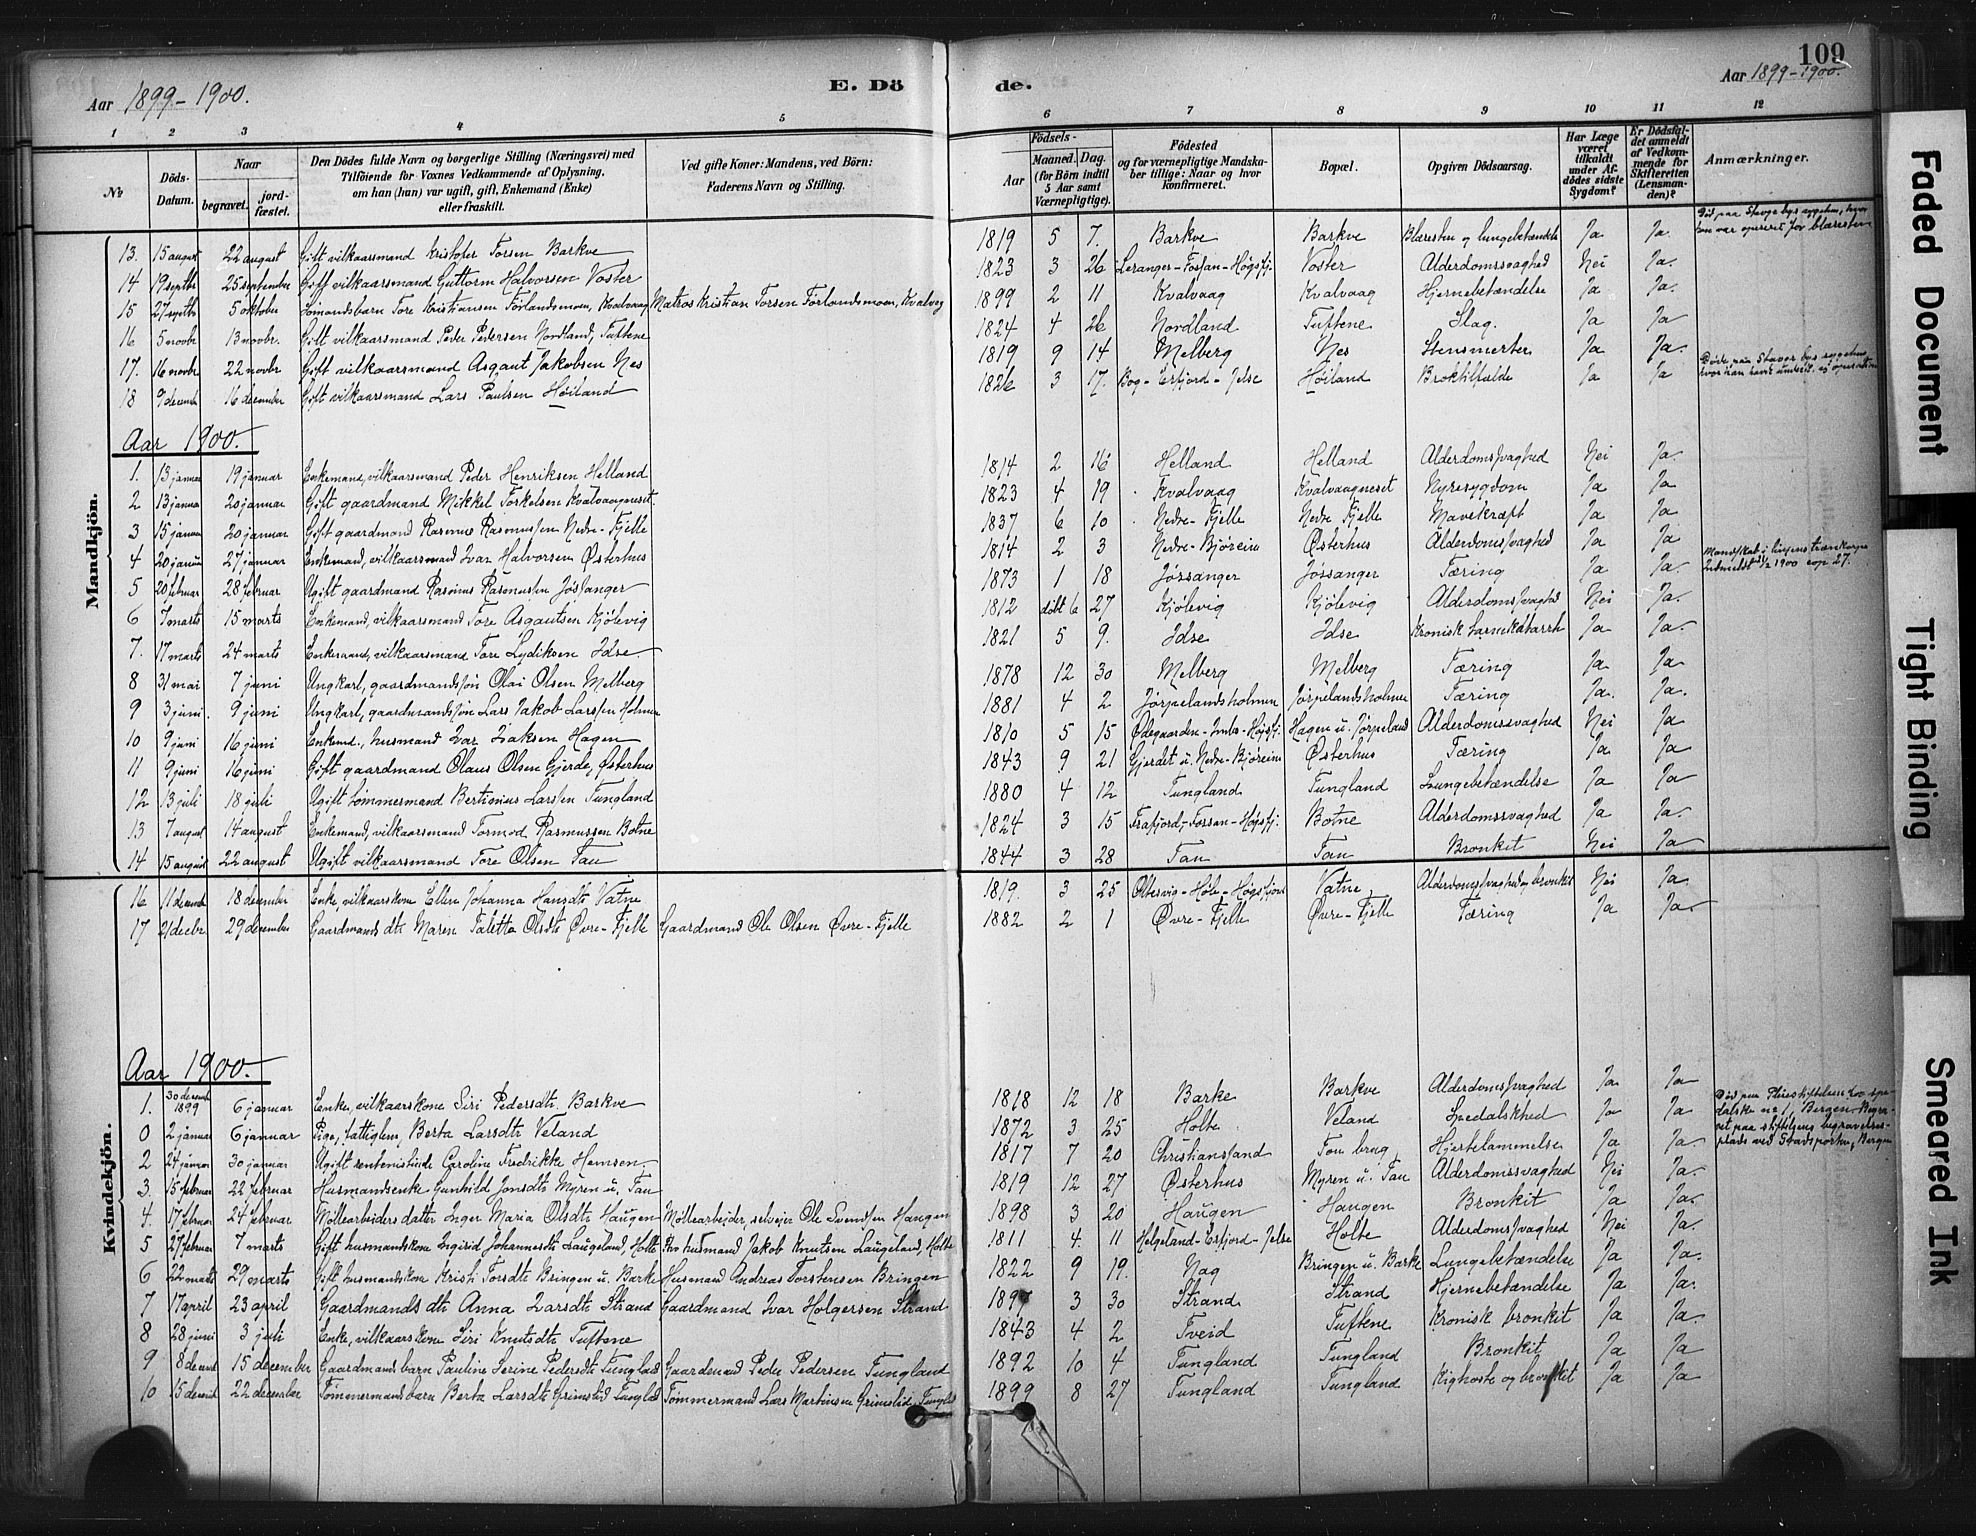 109
Aar 1899-1900. E. Dö de. Aar 1899-1900.
1 2 3 4 5 6 7 8 9 10 11 12
№ Döds-Datum. Naar begravet. jordfæstet. Den Dödes fulde Navn og borgerlige Stilling (Næringsvei) med Tilföiende for Voxnes Vedkommende af Oplysning, om han (han) var ugift, gift, Enkemand (Enke) eller fraskilt. Ved gifte Koner: Mandens, ved Börn: Faderens Navn og Stilling. Födsels- Aar Maaned. Dag. (for Börn indtil 5 Aar samt Værnepligtige). Födested og for værnepligtige Mandskaber tillige: Naar og hvor konfirmeret. Bopæl. Opgiven Dödsaarsag. Har Læge været tilkaldt under Afdödes sidste Sygdom? Er Dödsfaldet anmeldt af Vedkommende for Skifteretten (Lensmanden)? Anmærkninger.
Mandkjön.
13. 15 august 22 august Gift vilkaarsmand Kristofer Torsen Barkve 1819 5 7. Barkve Barkve Blæresten og lungebetændels Ja Ja. Död paa Stavg. bys sygehus, hvor han var opereret for blæresten
14 19 septbr 25 september Gift vilkaarsmand Guttorm Halvorsen Voster 1823 3 26 Leranger-Fossan-Högsfj. Voster Alderdomssvaghed Nei Ja.
15 27 septbr 5 oktober Sömandsbarn Tore Kristiansen Förlandsmoen, Kvalvaag Matros Kristian Torsen Förlandsmoen, Kvalvag 1899 2 11 Kvalvaag Kvalvaag Hjernebetændelse Ja Ja.
16 5 novbr 13 novbr. Gift vilkaarsmand Peder Pedersen Nordland, Tuftene 1824 4 26 Nordland Tuftene Slag. Ja Ja
17. 16 novbr 22 novbr Gift vilkaarsmand Asgaut Jakobsen Nes 1819 9 14 Melberg Nes Stensmerter Ja Ja.
18 9 decemb 16 december Gift vilkaarsmand Lars Paulsen Höiland 1826 3 17. Bog-Erfjord-Jelse Höiland Broktilfælde Ja Ja Döde paa Stavgr bys sygehus hvor han havde underk. sig operation
Aar 1900.
1. 13 januar 19 januar Enkemand, vilkaarsmand Peder Henriksen Helland 1814 2 16 Helland Helland Alderdomssvaghed Nei Ja.
2 13 januar 20 januar Gift gaardmand Mikkel Torkelsen Kvalvaagneset. 1823 4 19 Kvalvaag Kvalvaagneset Nyresygdom Ja Ja
3 15 januar 20 januar Gift gaardmand Rasmus Rasmussen Nedre-Fjelle 1837 6 10 Nedre-Fjelle Nedre Fjelle Mavekræft Ja Ja
4 20 januar 27 januar Enkemand, vilkaarsmand Ivar Halvorsen Østerhus 1814 2 3 Nedre-Björeim Østerhus Alderdomssvaghed Ja Ja
5 20 februar 28 februar Ugift gaardmand Rasmus Rasmussen Jössanger 1873 1 18 Jössanger Jössanger Tæring Ja Ja. Mandskab i linjens trænkorps
6 7 marts 15 marts Enkemand, vilkaarsmand Tore Asgautsen Kjölevig 1812 döbt 6 27 Kjölevig Kjölevig Alderdomssvaghed Nei Ja.
7. 17 marts 24 marts Enkemand, vilkaarsmand Tore Lydiksen Idse. 1821 5 9. Idse Idse Kronisk tarmkatarrh Ja Ja.
8 31 mai 7 juni Ungkarl, gaardmandssön Olai Olsen Melberg 1878 12 30 Melberg Melberg Tæring Ja Ja
9 3 juni 9 juni Ungkarl, gaardmandssön Lars Jakob Larssen Holmen 1881 4 2 Jørpelandsholmen Jørpelandsholmen Tæring Ja. Ja.
10 9 juni 16 juni Enkemd., husmand Ivar Isaksen Hagen 1810 5 15 Ødegaarden-Imbs-Högsfj. Hagen u. Jørpeland Alderdomssvaghed Nei Ja
11 9 juni 16 juni Gift gaardmand Olaus Olsen Gjerde, Østerhus 1843 9 21 Gjerdet u. Nedre-Björeim Østerhus Tæring Ja Ja
12 13 juli 18 juli Ugift tömmermand Bertinius Larssen Tungland 1880 4 12 Tungland Tungland Lungebetændelse Ja Ja
13 7 august 14 august Enkemand, vilkaarsmand Tormod Rasmussen Botne 1824 3 15 Frafjord-Fossan-Högsfj. Botne Alderdomssvaghed Ja Ja.
14 15 august 22 august Ugift vilkaarsmand Tore Olsen Tau 1844 3 28 Tau Tau Bronkit Nei Ja
Kvindekjön.
16 11 decemb 18 december Enke vilkaarskone Ellen Johanna Hansdtr Vatne 1819. 3 25 Oltesvig-Höle-Högsfjord Vatne Alderdomssvaghed og bronkit Nei Ja.
17 21 decbr 29 december Gaardmandsdtr Maren Taletta Olsdtr Øvre-Fjelle Gaardmand Ole Olsen Øvre-Fjelle 1882 2 1 Øvre-Fjelle Øvre-Fjelle Tæring Ja Ja.
Aar 1900.
1. 30 decemb 1899 6 januar Enke, vilkaarskone Siri Pedersdtr Barkve 1818 12 18 Barke Barkve Alderdomssvaghed Ja Ja
0 2 januar 6 januar Pige, fattiglem, Berta Larsdtr Veland 1872 3 25 Holte Veland Spedalskhed Ja Ja Död paa Pleiestiftelsen for spedalske no 1, Bergen. Begravet paa stiftelsens begravelsesplads ved Stadsporten, Bergen
2 24 januar 30 januar Ugift rentenistinde Caroline Fredrikke Hemsen. 1817 7 20 Christianssand Tou brug Hjertelammelse Ja Ja
3. 15 februar 22 februar Husmandsenke Gunhild Jonsdtr Myren u. Tau 1819 12 27 Østerhus Myren u. Tau Alderdomssvaghed Nei Ja.
4. 17 februar 24 februar Möllearbeidersdatter Inger Maria Olsdtr Haugen Möllearbeider, selveier Ole Svendsen Haugen 1898 3 20 Haugen Haugen Bronkit Ja Ja.
5 27 februar 7 marts Gift husmandskone Ingrid Johannesdtr Laugeland, Holte husmand Jakob Knutsen Laugeland, Holte 1811 4 11 Helgeland-Erfjord-Jelse Holte Alderdomssvaghed Nei Ja.
6 22 marts 29 marts Gift husmandskone Kristi Torsdtr Bringen u. Barke Husmand Andreas Torstensen Bringen 1822 9 19. Nag Bringen u. Barke Lungebetændelse Ja Ja.
7 17 april 23 april Gaardmandsdtr Anna Ivarsdtr Strand Gaardmand Ivar Holgersen Strand 1897 3 30 Strand Strand Hjernebetændelse Ja Ja.
8 28 juni 3 juli Enke, vilkaarskone Siri Knutsdtr Tuftene 1843 4 2 Tveid Tuftene Kronisk bronkit Ja Ja.
9 8 decemb 15 december Gaardmandsbarn Pauline Serine Pedersdtr Tungland Gaardmand Peder Pedersen Tungland 1892 10 4 Tungland Tungland Bronkit Ja Ja
10 15 decemb 22 december Tömmermandsbarn Berta Larsdtr Grimslid Tungland Tömmermand Lars Martinsen Grimslid, Tungland 1899 8 27 Tungland Tungland Kighoste og bronkit Ja Ja
Faded Document
Tight Binding
Smeared Ink